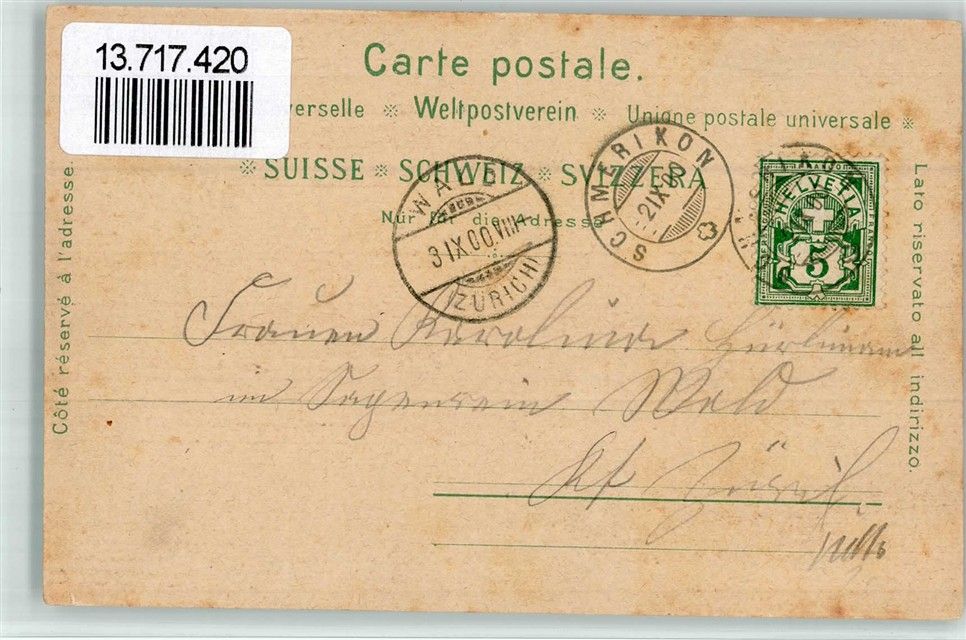 13.717.420
Carte postale.
verselle ※ Weltpostverein ※ Unione postale universale ※
※ SUISSE ※ SCHWEIZ ※ SVIZZERA
Nur für die Adresse
Côté réservé à l'adresse.
Lato riservato all indirizzo.
WALD
3 IX 00. VIII
(ZÜRICH)
SCHMERIKON
2 IX 00
HELVETIA
5
Frauen Karolina Hürlimann
im Sagenrein Wald
Kt Zürich.